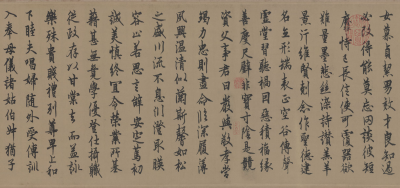 女慕貞絜男效才良知過
必改得能莫忘罔談彼短
靡恃己長信使可覆器欲
難量墨悲絲染詩讚羔羊
景行維賢剋念作聖德建
名立形端表正空谷傳聲
虛堂習聽禍因惡積福緣
善慶尺璧非寶寸陰是競
資父事君曰嚴與敬孝當
竭力忠則盡命臨深履薄
夙興溫凊似蘭斯馨如松
之盛川流不息淵澄取映
容止若思言辭安定篤初
誠美慎終宜令榮業所基
藉甚無竟學優登仕攝職
從政存以甘棠去而益詠
樂殊貴賤禮別尊卑上和
下睦夫唱婦隨外受傅訓
入奉母儀諸姑伯叔猶子